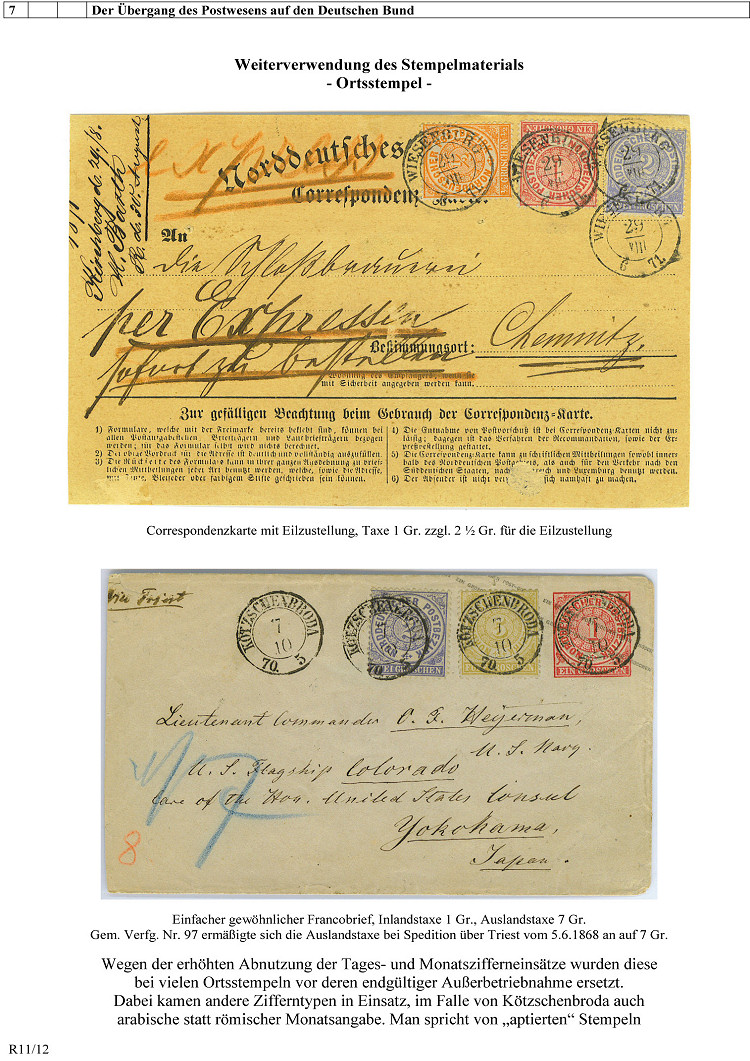 7 Der Übergang des Postwesens auf den Deutschen Bund
Weiterverwendung des Stempelmaterials
- Ortsstempel -
Kirchberg d. 29/8.
Norddeutsches
Correspondenz-Karte.
WIESENBURG
29
VIII
71.
WIESENBURG
29
VIII
71.
WIESENBURG
29
VIII
71.
WIESENBURG
29
VIII
71.
An
die Schloßbrauerei
per Expressen
sofort zu bestellen
Bestimmungsort: Chemnitz.
Wohnung des Empfängers, wenn sie
mit Sicherheit angegeben werden kann.
Zur gefälligen Beachtung beim Gebrauch der Correspondenz-Karte.
1) Formulare, welche mit der Freimarke bereits beklebt sind, können bei
allen Postanstalten, Briefträgern und Landbriefträgern bezogen
werden; für das Formular selbst wird nichts berechnet.
2) Der obige Vordruck für die Adresse ist deutlich und vollständig auszufüllen.
3) Die Rückseite des Formulars kann in ihrer ganzen Ausdehnung zu brief-
lichen Mittheilungen jeder Art benutzt werden, welche, sowie die Adresse,
mit Tinte, Bleifeder oder farbigem Stifte geschrieben sein können.
4) Die Entnahme von Postvorschuß ist bei Correspondenz-Karten nicht zu-
läßig; dagegen ist das Verfahren der Recommandation, sowie der Ex-
preßbestellung gestattet.
5) Die Correspondenz-Karte kann zu schriftlichen Mittheilungen sowohl inner-
halb des Norddeutschen Postgebiets, als auch für den Verkehr nach den
Süddeutschen Staaten, nach Oesterreich und Luxemburg benutzt werden.
6) Der Absender ist nicht verpflichtet, sich namhaft zu machen.
Correspondenzkarte mit Eilzustellung, Taxe 1 Gr. zzgl. 2 ½ Gr. für die Eilzustellung
via Triest
KÖTZSCHENBRODA
7
10
70. 5
KÖTZSCHENBRODA
70. 5
KÖTZSCHENBRODA
7
10
70. 5
KÖTZSCHENBRODA
7
10
70. 5
EIN GROSCHEN
Lieutenant Commander O. F. Heyerman,
U. S. Navy.
U. S. Flagship Colorado
Care of the Hon. United States Consul
Yokohama,
Japan.
8
Einfacher gewöhnlicher Francobrief, Inlandstaxe 1 Gr., Auslandstaxe 7 Gr.
Gem. Verfg. Nr. 97 ermäßigte sich die Auslandstaxe bei Spedition über Triest vom 5.6.1868 an auf 7 Gr.
Wegen der erhöhten Abnutzung der Tages- und Monatszifferneinsätze wurden diese
bei vielen Ortsstempeln vor deren endgültiger Außerbetriebnahme ersetzt.
Dabei kamen andere Zifferntypen in Einsatz, im Falle von Kötzschenbroda auch
arabische statt römischer Monatsangabe. Man spricht von „aptierten“ Stempeln
R11/12